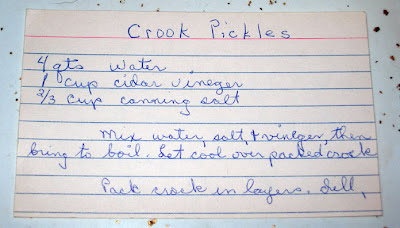 Crook Pickles
4 qts water
1 cup cidar vineger
2/3 cup canning salt
Mix water, salt, & vineger, then
bring to boil. Let cool over packed crock
Pack crock in layers. Dill,